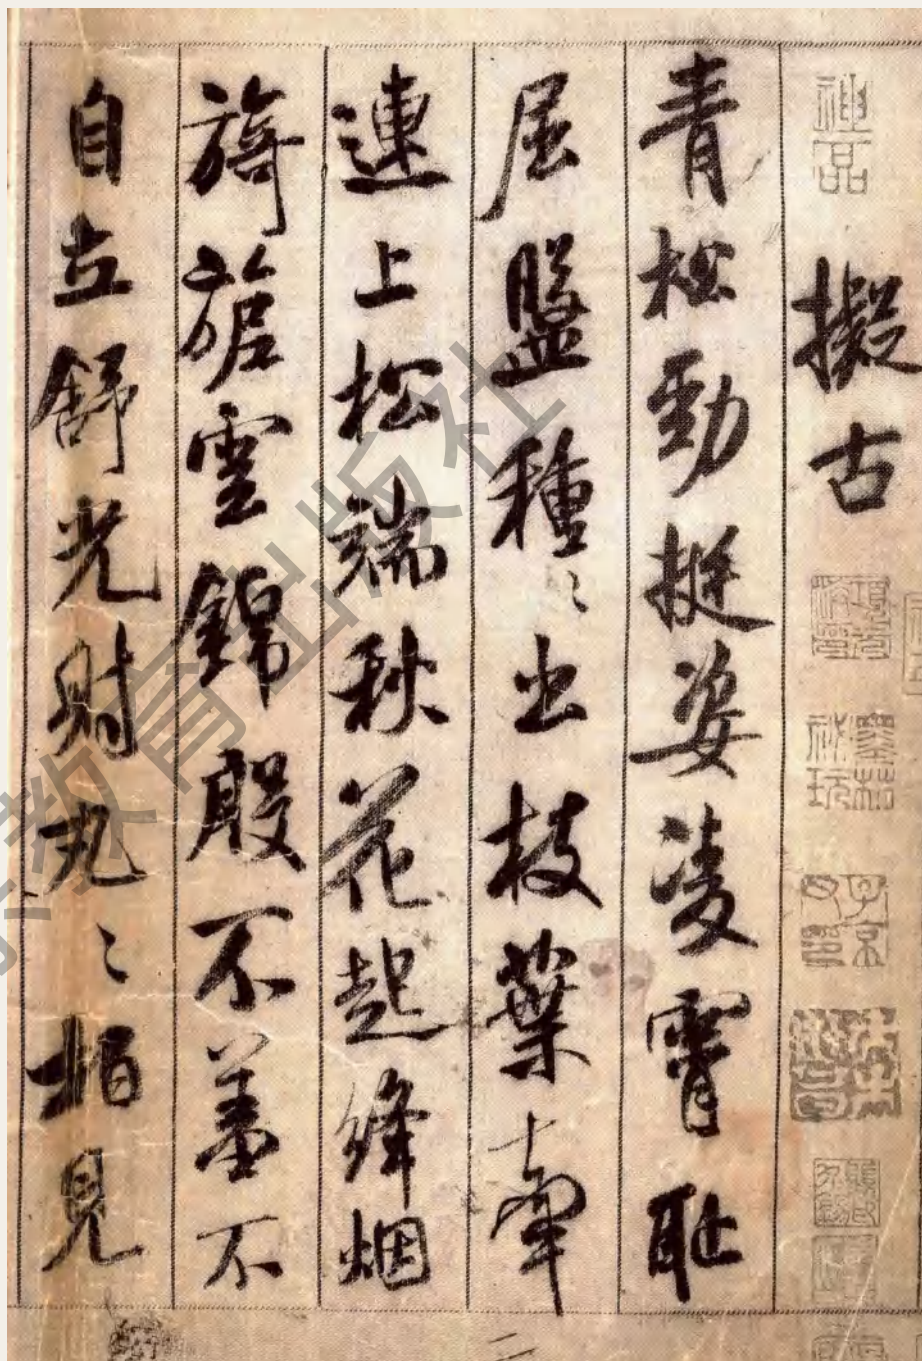 神品
擬古
青松勁挺姿凌霄恥
屈盤種〻出枝葉牽
連上松端秋花起絳烟
旖旎雲錦殷不羞不
自立舒光射丸〻柏見
教育出版社